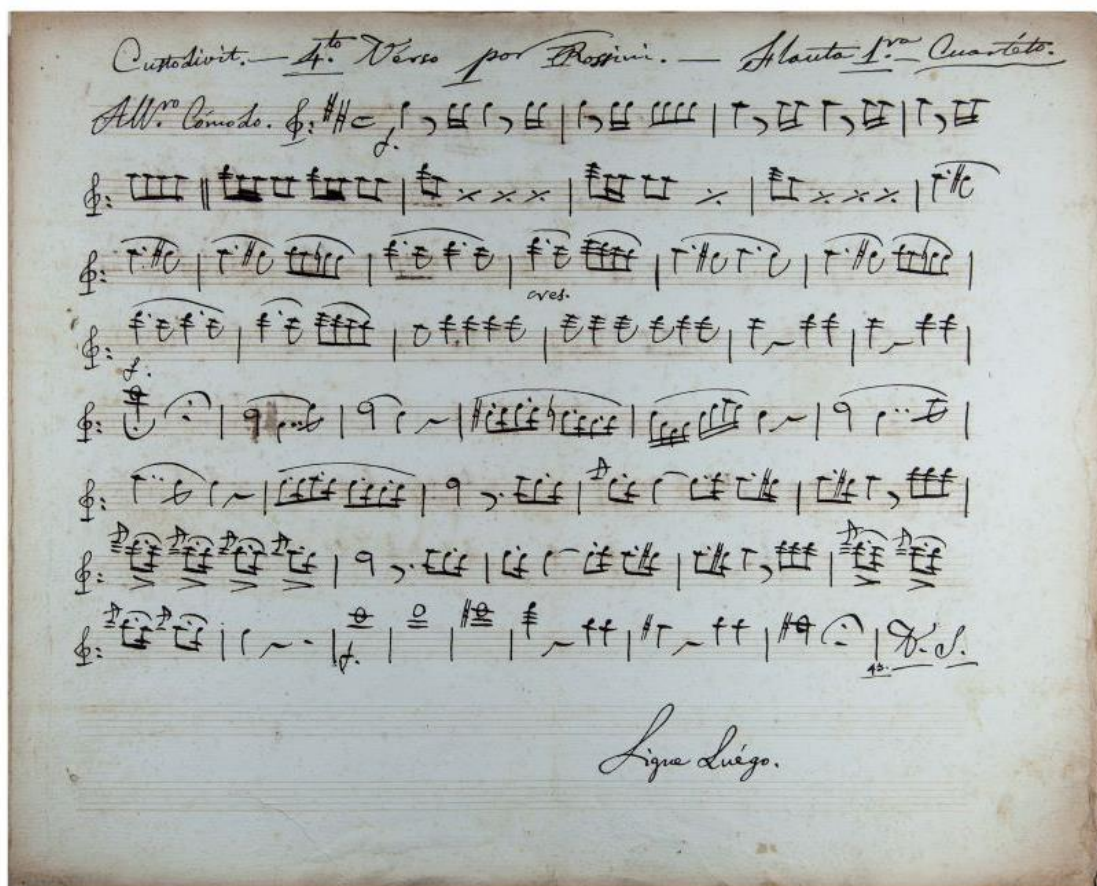 Custodivit. — 4.to Verso por Rossini. — Flauta 1.ra Cuartéto.
All.ro Cómodo. f.
cres.
f.
f. 43. V. S.
Sigue Luégo.